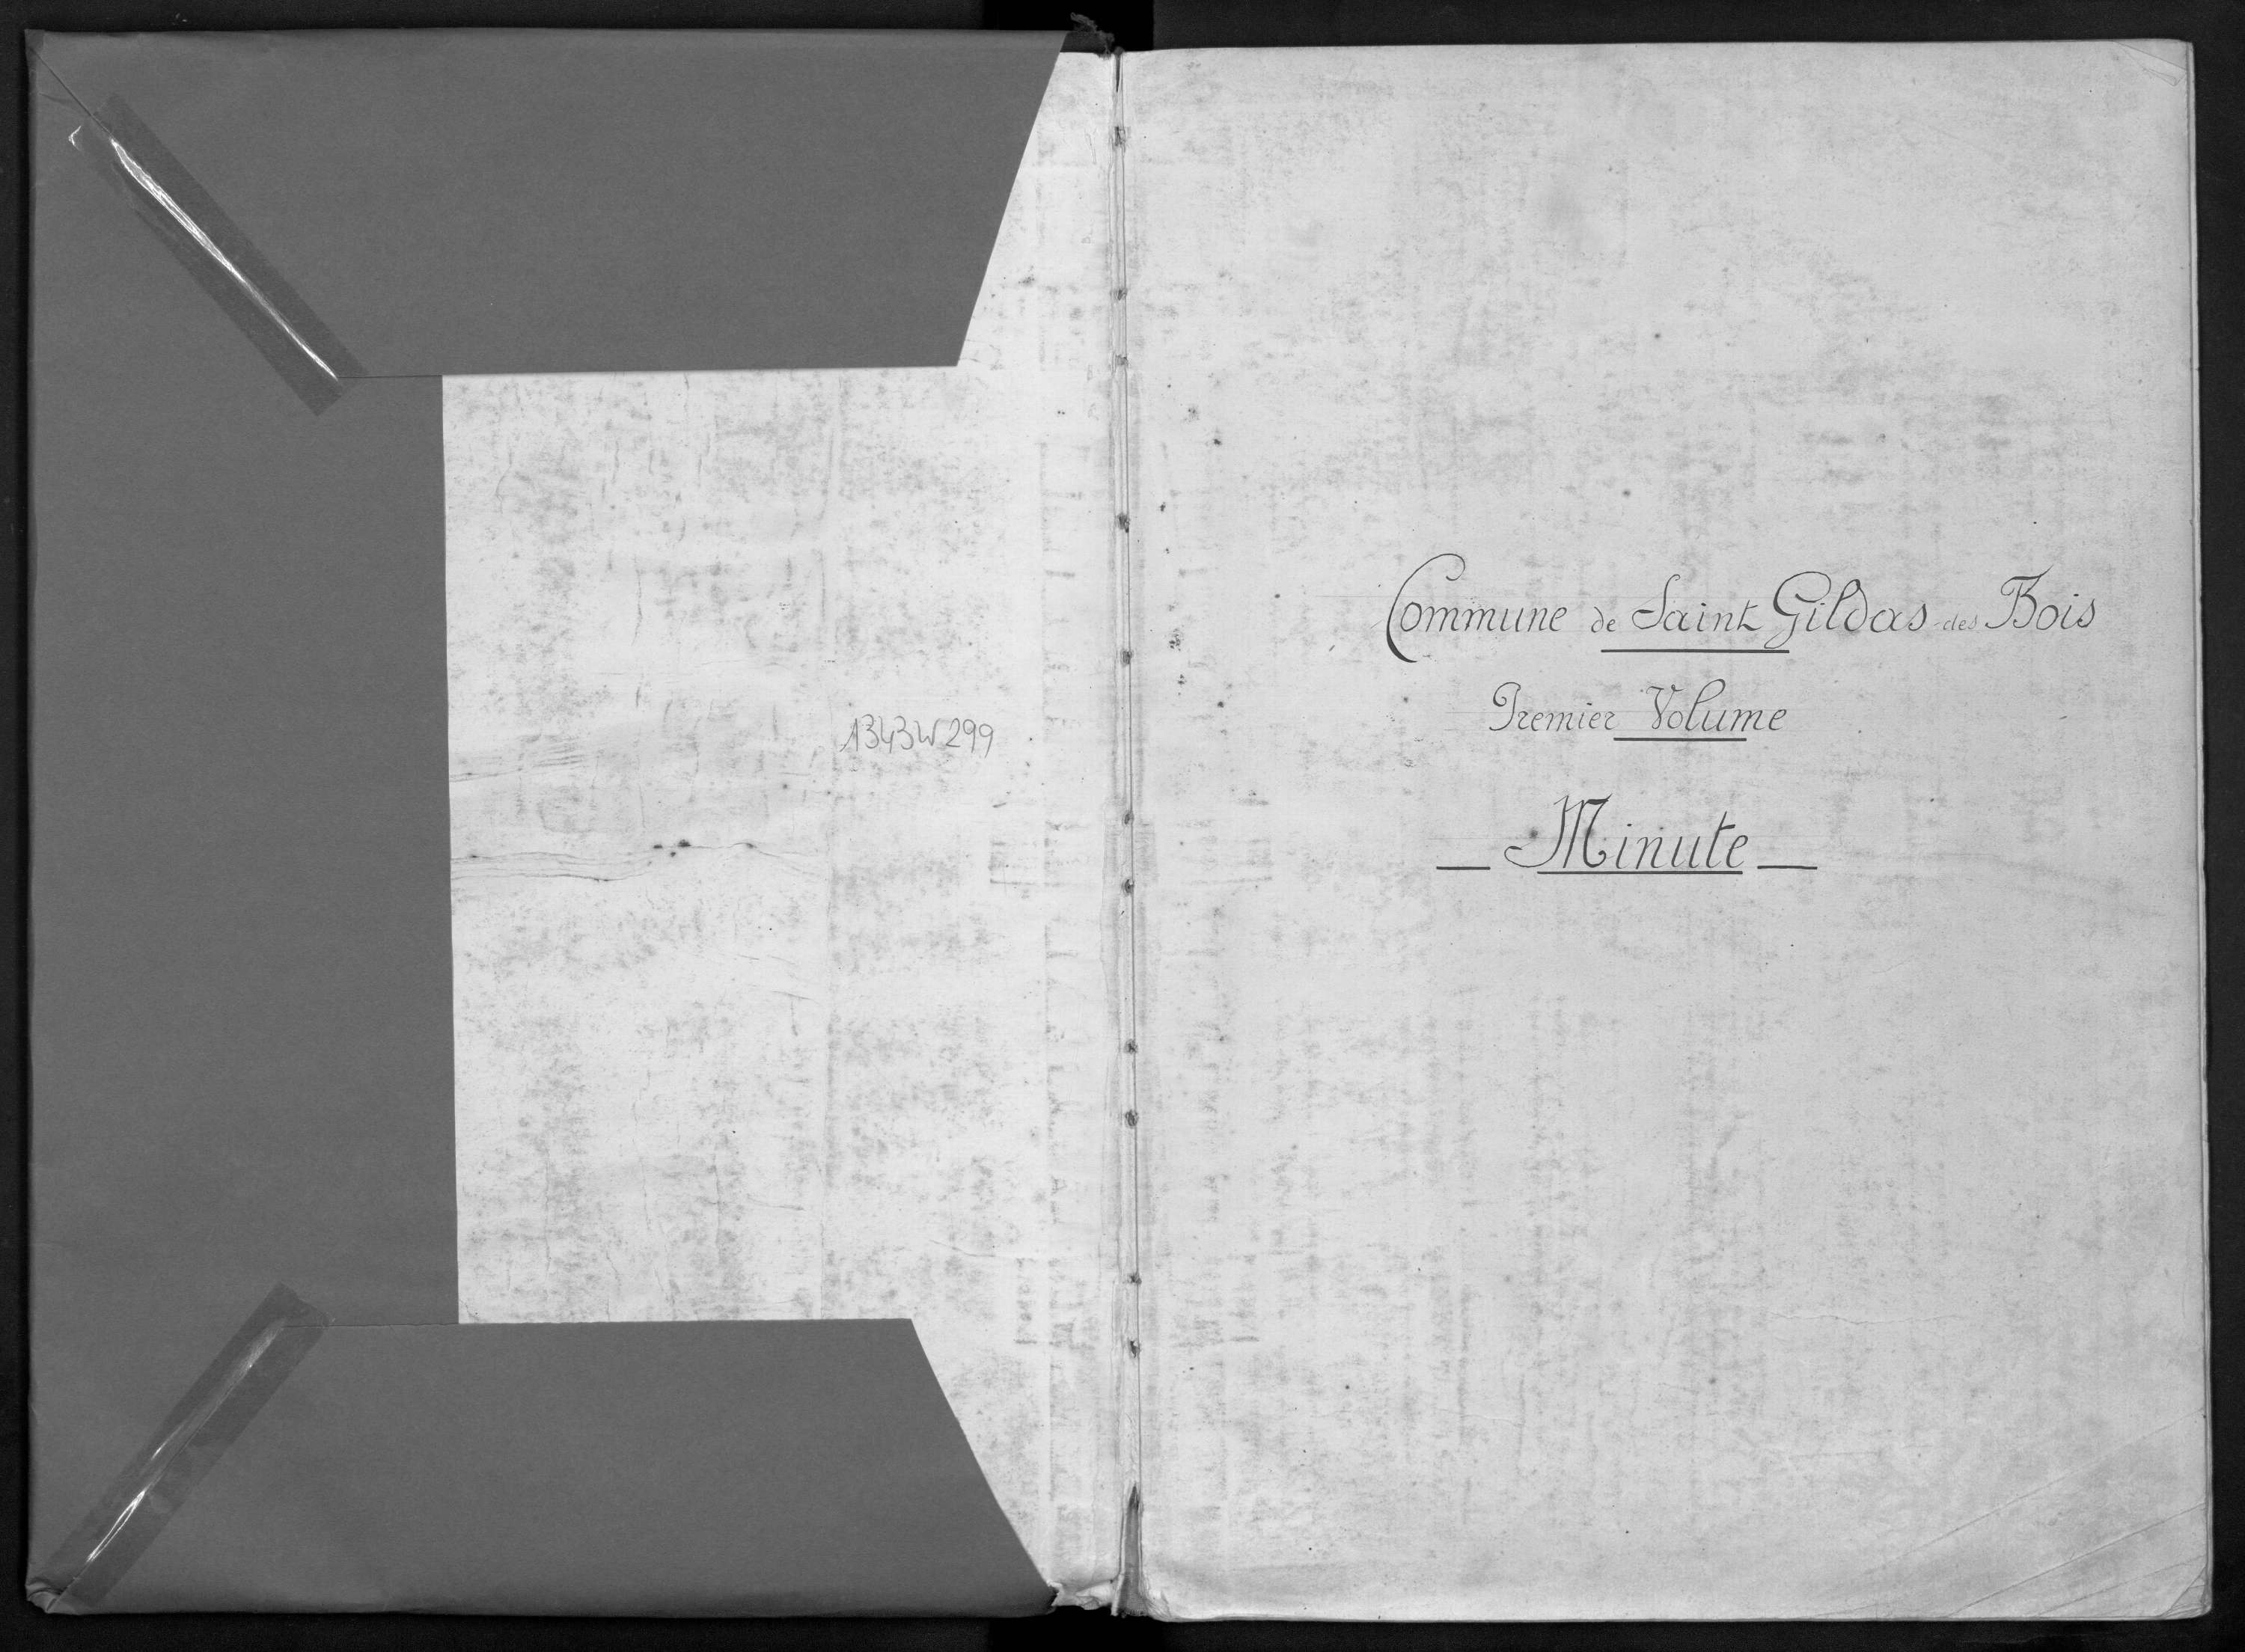 1343W299
Commune de Saint Gildas-des Bois
Premier Volume
Minute